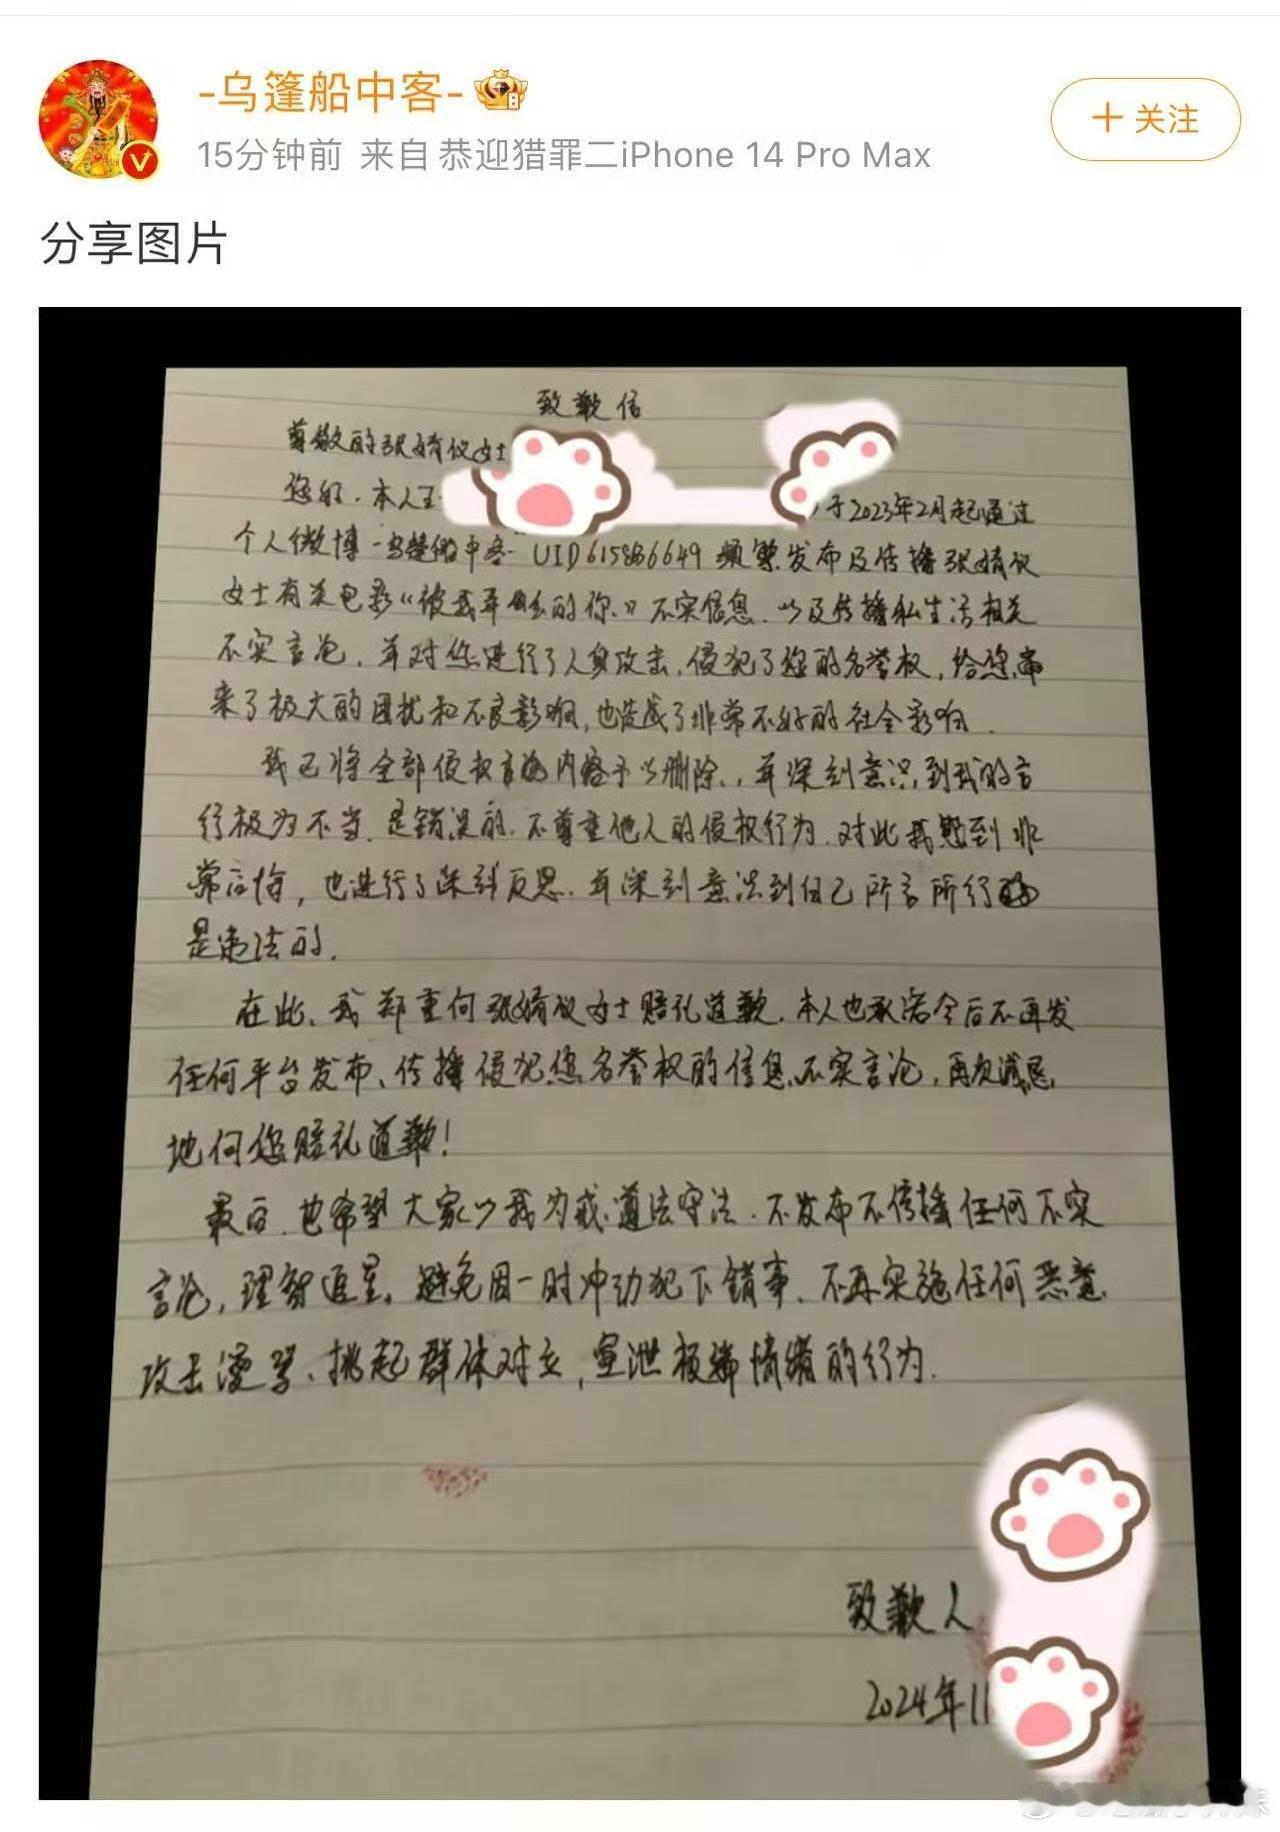 -乌篷船中客-
+ 关注
15分钟前 来自 恭迎猎罪二iPhone 14 Pro Max
分享图片
致歉信
尊敬的张婧仪女士
您好．本人王
于2023年2月起通过
个人微博-乌篷船中客- UID6158366649频繁发布及传播张婧仪
女士有关电影《被我弄丢的你》不实信息．以及传播私生活相关
不实言论，并对您进行了人身攻击，侵犯了您的名誉权，给您带
来了极大的困扰和不良影响，也造成了非常不好的社会影响．
我已将全部侵权言论内容予以删除，并深刻意识到我的言
行极为不当．是错误的．不尊重他人的侵权行为．对此我感到非
常后悔，也进行了深刻反思．并深刻意识到自己所言所行
是违法的．
在此、我郑重向张婧仪女士赔礼道歉．本人也承诺今后不再发
任何平台发布、传播侵犯您名誉权的信息、不实言论，再次诚恳
地向您赔礼道歉！
最后．也希望大家以我为戒．遵法守法．不发布不传播任何不实
言论，理智追星。避免因一时冲动犯下错事．不再实施任何恶意
攻击谩骂、挑起群体对立，宣泄极端情绪的行为．
致歉人
2024年11